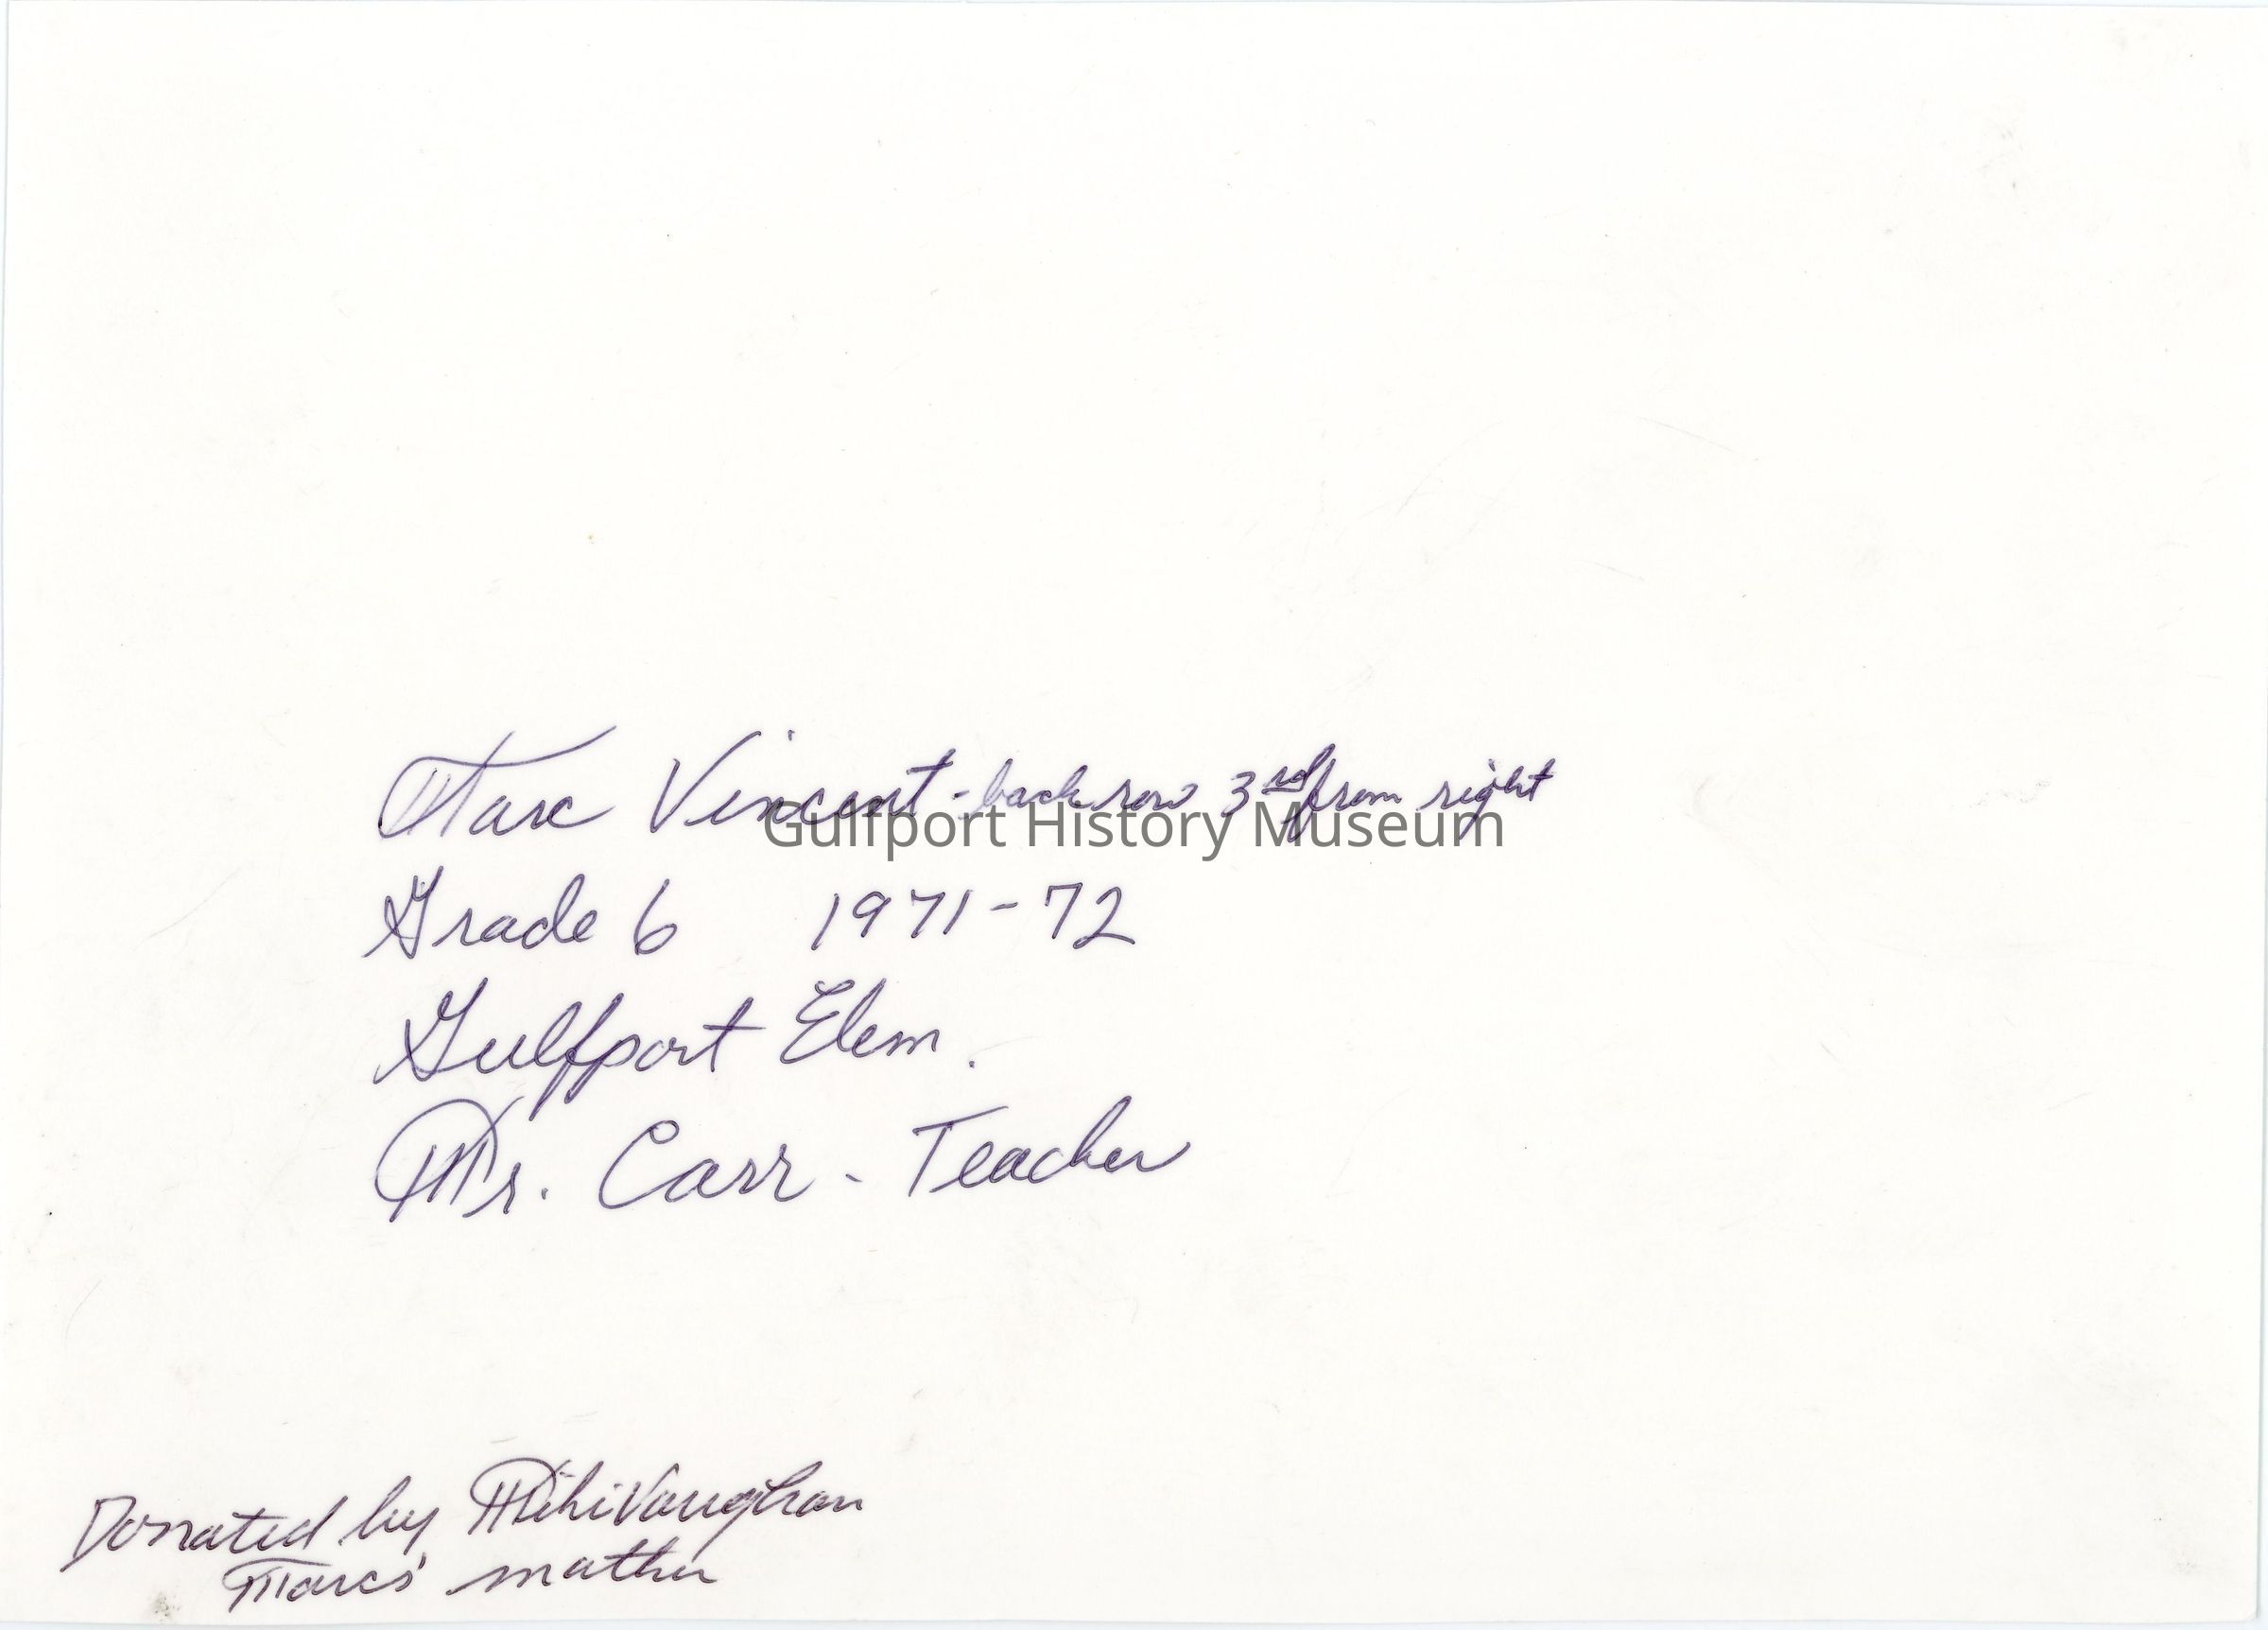 Marc Vincent - back row 3rd from right
Gulfport History Museum
Grade 6 1971-72
Gulfport Elem.
Mr. Carr - Teacher
Donated by Miki Vaughan
Marcs' mother